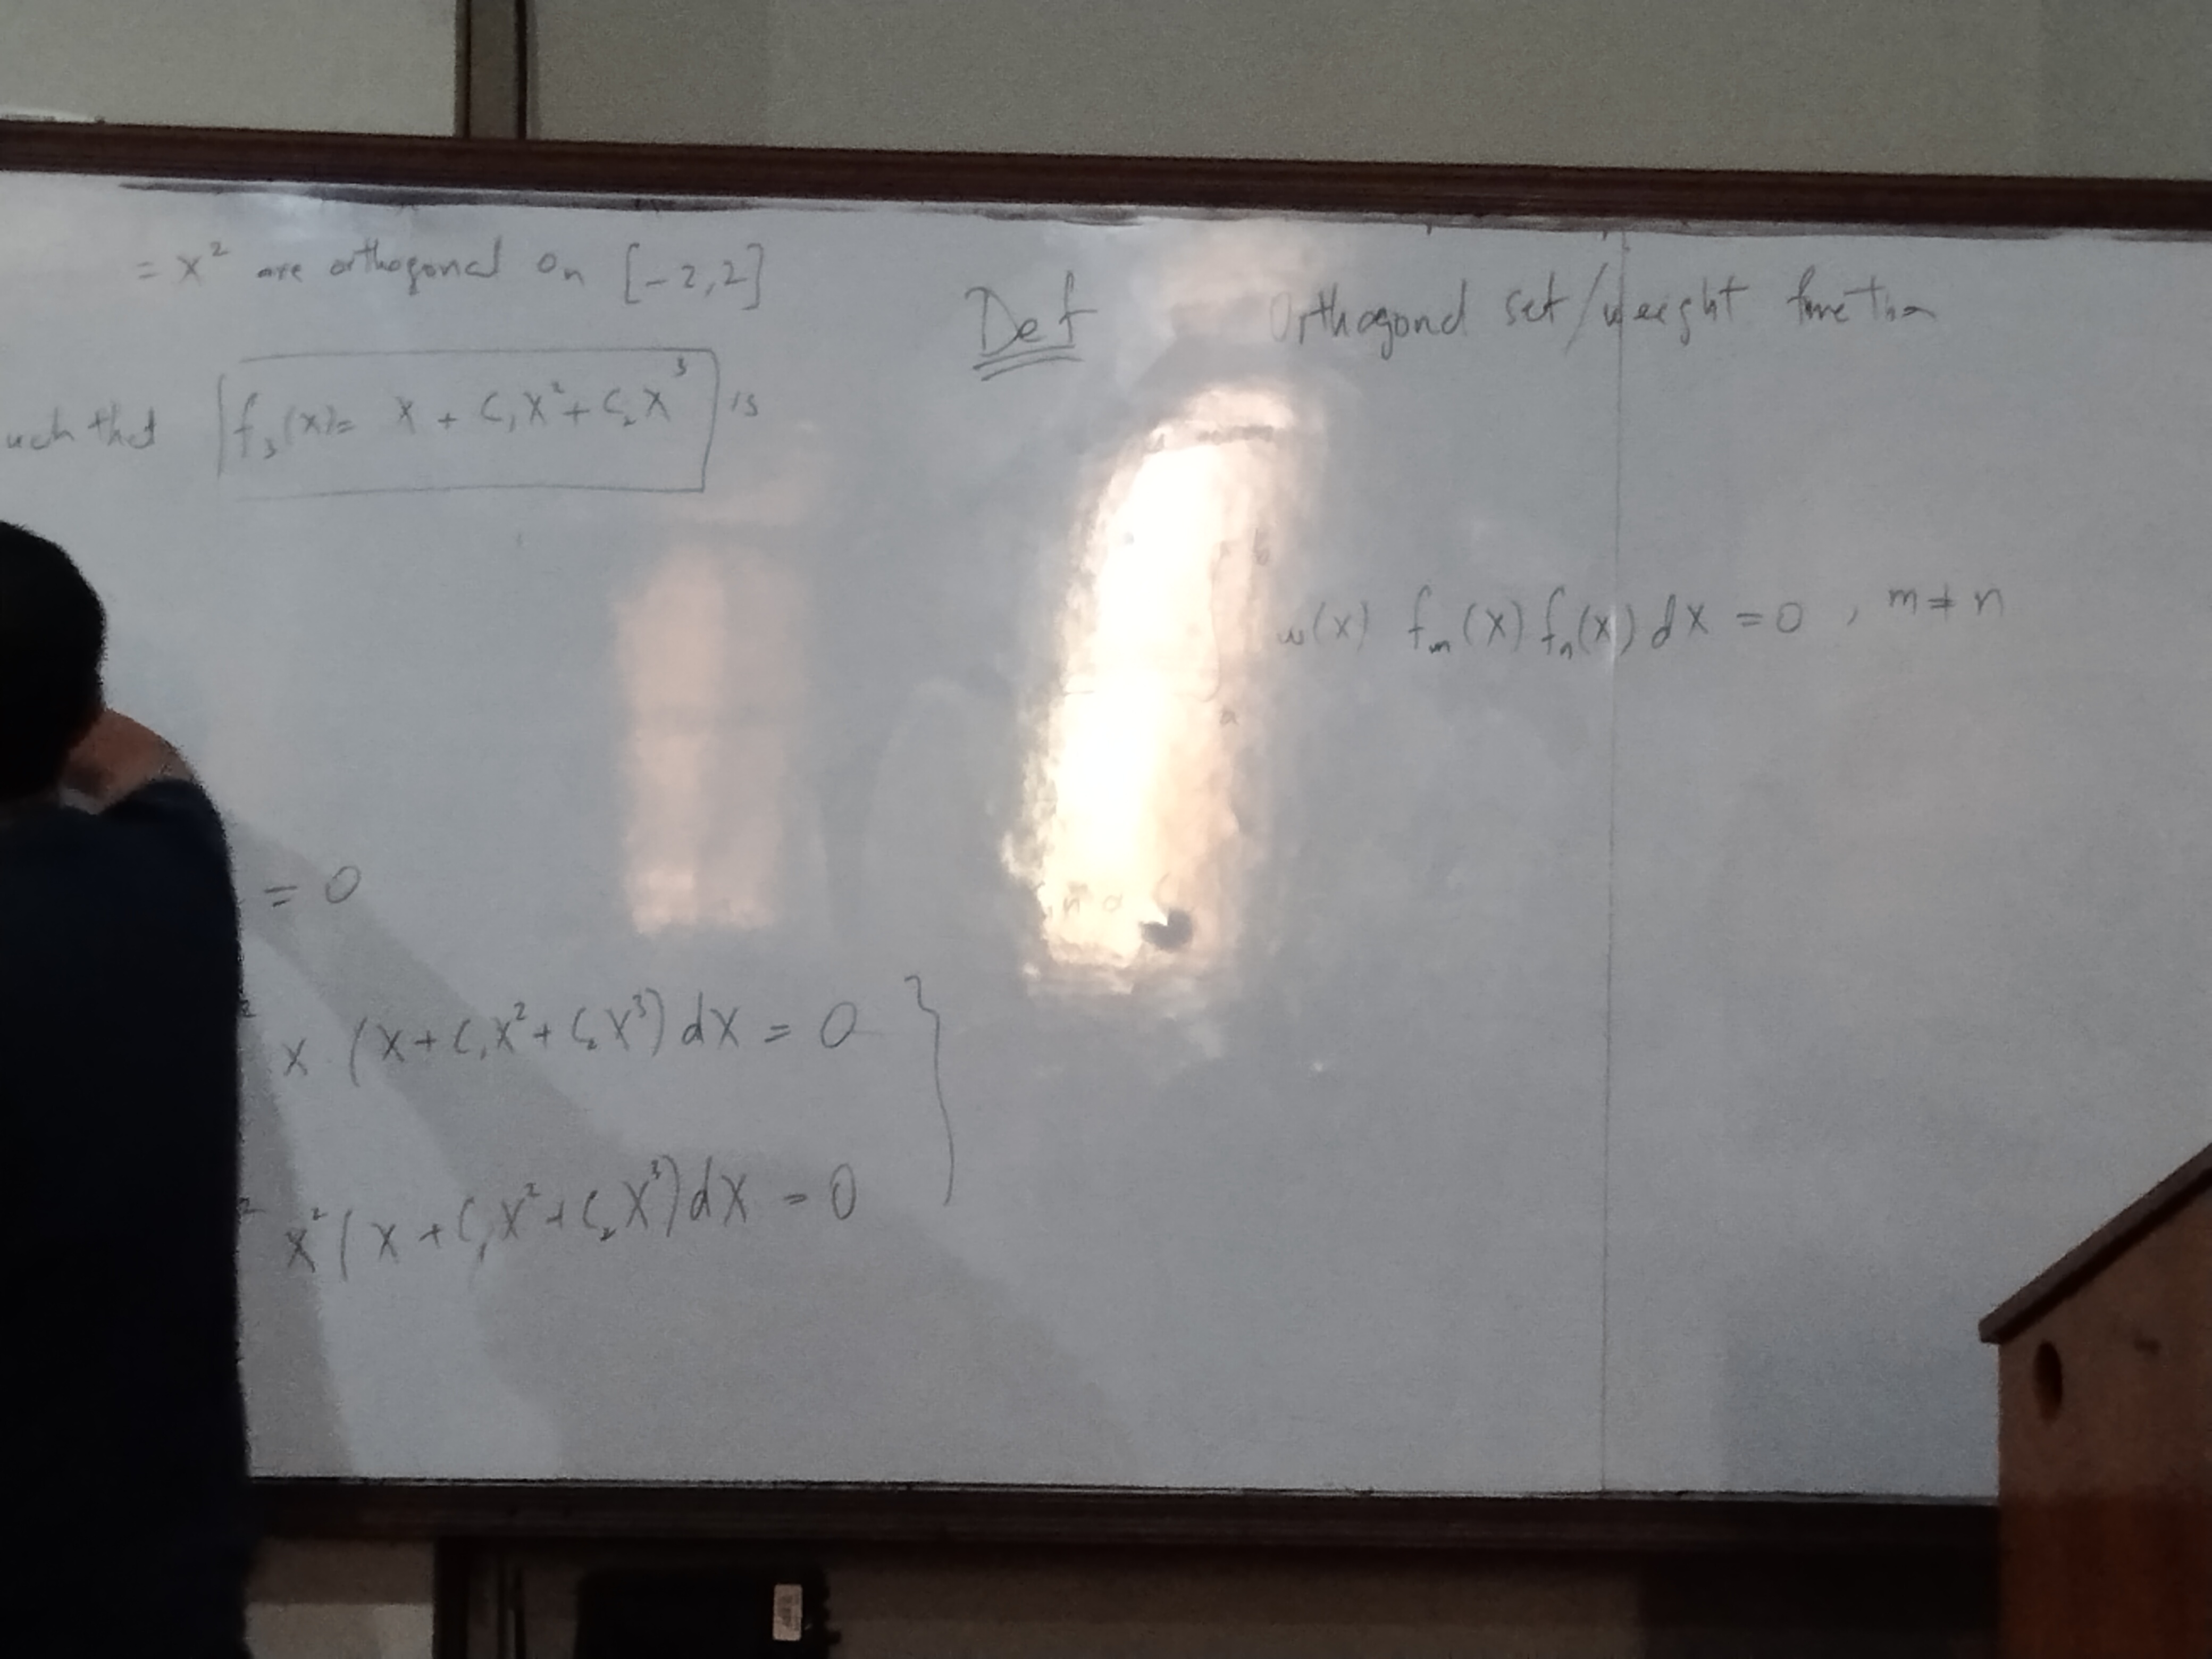 = x² are orthogonal on [-2,2]
uch that f₃(x)= x + c₁x² + c₂x³ is
= 0
x (x + c₁x² + c₂x³) dx = 0
x² (x + c₁x² + c₂x³) dx = 0
Def Orthogonal set/weight function
∫ₐᵇ w(x) fₘ(x) fₙ(x) dx = 0 , m ≠ n